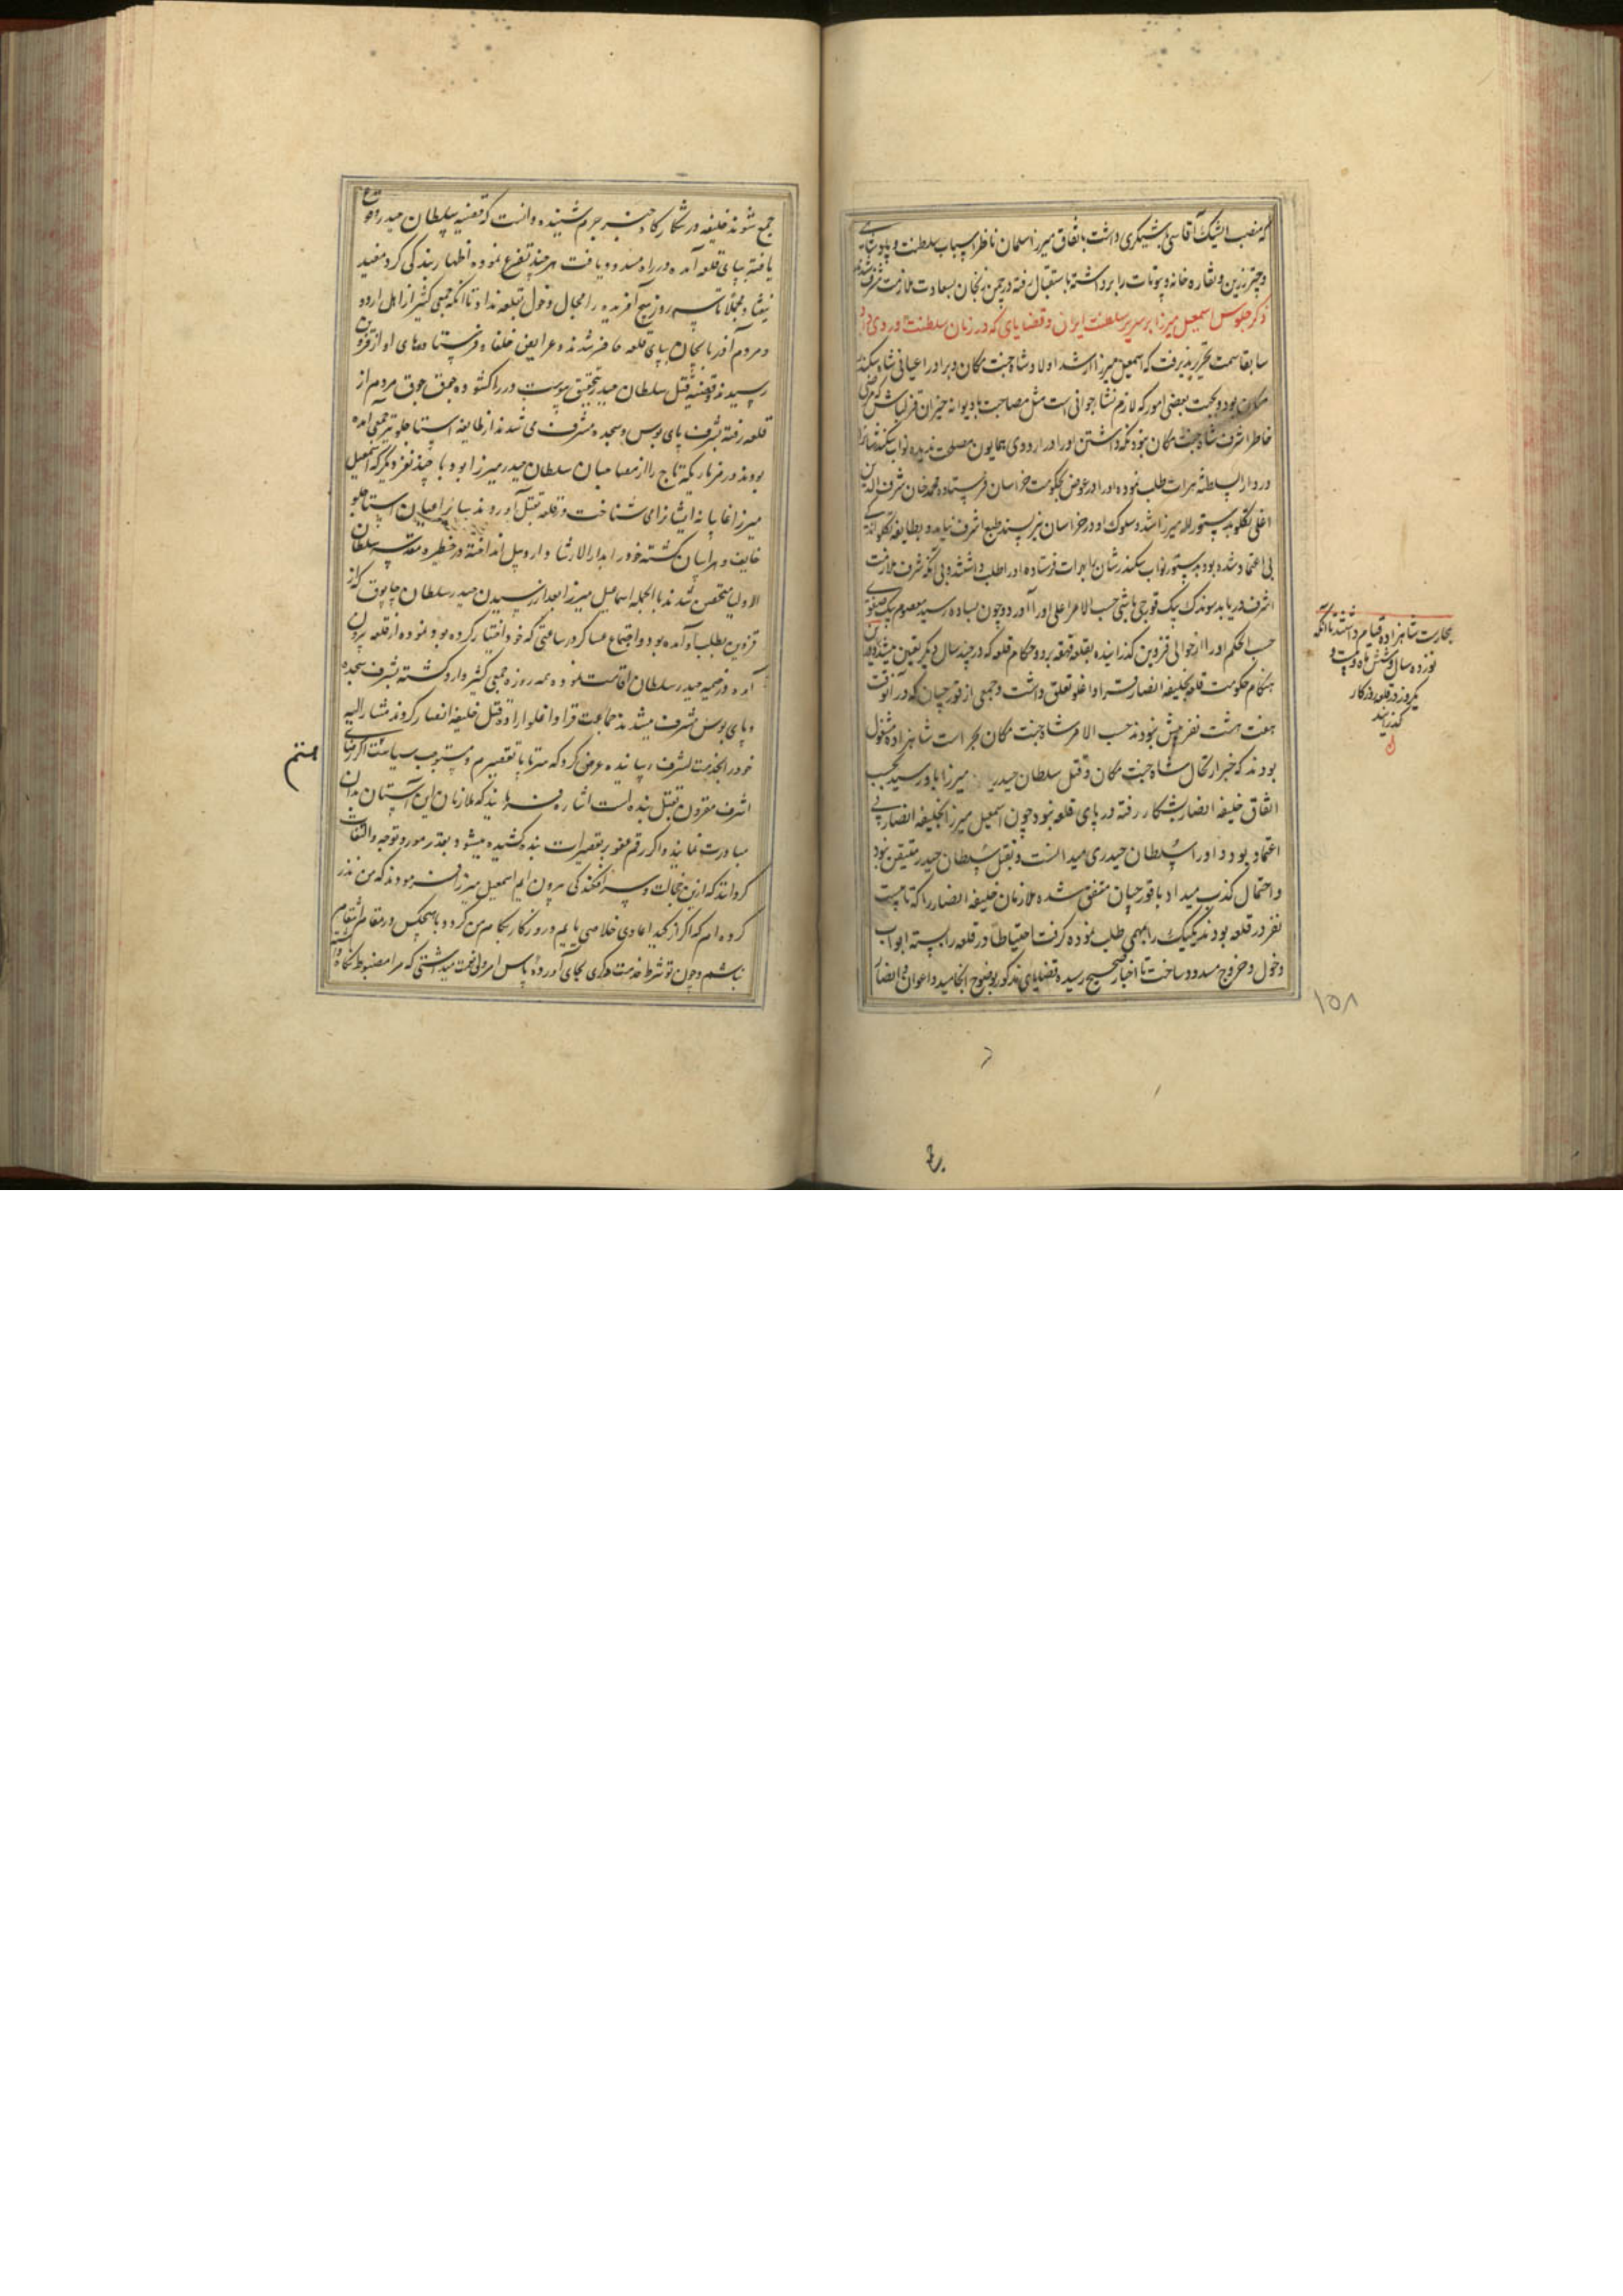 که منصب ایشیک آقاسی باشیگری داشت باتفاق میرزا سلمان ناظر اسباب سلطنت و پادشاهی
و چتر زرین و نقاره خانه و بیوتات را برداشته باستقبال رفته در چمن زنجان بسعادت ملازمت مشرف شدند
ذکر جلوس اسمعیل میرزا بر سریر سلطنت ایران و قضایای که در زمان سلطنت او روی داد
سابقا سمت تحریر پذیرفت که اسمعیل میرزا ارشد اولاد شاه جنت مکان و برادر اعیانی شاه سکندر
مکان بود و بجهت بعضی امور که لازم نشاء جوانی است مثل مصاحبت با دیوانه خیزان قزلباش که مرضی
خاطر اشرف شاه جنت مکان نبود نگه داشتن او را در اردوی همایون مصلحت ندیده نواب سکندر شان را
در دار السلطنه هرات طلب نموده او را در عوض بحکومت خراسان فرستاده محمد خان شرف الدین
اغلی تکلو بدستور لله میرزا شد و سلوک او در خراسان نیز پسند طبع اشرف نیامد و بطایفه تکلو اندک
بی اعتماد شده بود بدستور نواب سکندر شان را بهرات فرستاده او را طلب داشتند و بی آنکه شرف ملازمت
اشرف دریابد سوندک بیک قورچی باشی حسب الامر اعلی او را آورد و چون بساوه رسید معصوم بیک صفوی
حسب الحکم او را از حوالی قزوین گذرانیده بقلعه قهقهه برد و حکام قلعه که در چند سال دیگر تعیین میشدند درین
هنگام حکومت قلعه بخلیفه انصار قرا داغلو تعلق داشت و جمعی از قورچیان که در آنوقت
هفت هشت نفر بیش نبودند حسب الامر شاه جنت مکان بحراست شاهزاده مشغول
بودند که خبر ارتحال شاه جنت مکان و قتل سلطان حیدر میرزا باو رسید بحسب
اتفاق خلیفه انصار بشکار رفته در پای قلعه نبود چون اسمعیل میرزا بخلیفه انصار بی
اعتماد بود و او را سلطان حیدری میدانست و بقتل سلطان حیدر متیقن نبود
و احتمال کذب میداد با قورچیان متفق شده ملازمان خلیفه انصار را که تا بیست
نفر در قلعه بودند یکیک را بمهمی طلب نموده گرفت احتیاطا در قلعه را بسته ابواب
دخول و خروج مسدود ساخت تا اخبار صحیح رسیده قضایای مذکور بوضوح انجامید و اعوان و انصار
بحارست شاهزاده قیام داشتند تا آنکه
نوزده سال و شش ماه و بیست و
یکروز در قلعه روزگار
گذرانید
۱۵۸
جمع شوند خلیفه در شکارگاه خبر جرم شنیده دانست که قضیه سلطان حیدر وقوع
یافته بپای قلعه آمده در راه مسدود یافت هر چند تضرع نموده اظهار بندگی کرد مفید
نیفتاد مجملا تا سه روز هیچ آفریده را مجال دخول قلعه نداد تا آنکه جمعی کثیر از اهل اردو
و مردم آذربایجان بپای قلعه حاضر شدند و عرایض خلفا و فرستاده های او از قزوین
رسیدند و قضیه قتل سلطان حیدر بتحقیق پیوست در را گشوده جوق جوق مردم از
قلعه رفته بشرف پای بوس و سجده مشرف می شدند از طایفه استاجلو نیز جمعی آمده
بودند و رفرنار یکه تاج را از مصاحبان سلطان حیدر میرزا بود با چند نفر دیگر که اسمعیل
میرزا غایبانه ایشانرا می شناخت در قلعه بقتل آوردند سایر اعیان استاجلو
خایف و هراسان گشته خود را بدار الارشاد اردبیل انداخته در حظیره مقدسه سلطان
الاولیا متحصن شدند بالجمله اسماعیل میرزا بعد از رسیدن حیدر سلطان چابوق که از
قزوین بطلب او آمده بود و اجتماع عساکر در ساعتی که خود اختیار کرده بود نموده از قلعه بیرون
آمده در خیمه حیدر سلطان اقامت نموده همه روزه جمعی کثیر وارد گشته بشرف سجده
و پای بوس مشرف میشدند جماعت قرا داغلو اراده قتل خلیفه انصار کردند مشار الیه
خود را بخدمت اشرف رسانیده عرض کرد که سر تا پا تقصیرم و مستوجب سیاست اگر رضای
اشرف مقرون بقتل بنده است اشاره فرمایند که ملازمان این آستان بدان
مبادرت نمایند و اگر رقم عفو بر تقصیرات بنده کشیده میشود بقدر مورد توجه و التفات
گردانند که ازین خجالت و سرافکندگی بیرون آیم اسمعیل میرزا فرمودند که من نذر
کرده ام که اگر از کید اعادی خلاصی یابم و روزگار بکام من گردد با هیچکس در مقام انتقام
نباشم و چون تو شرط خدمت همگری بجای آورده پاس امر ولی نعمت میداشتی که مرا مضبوط نگاه داشته